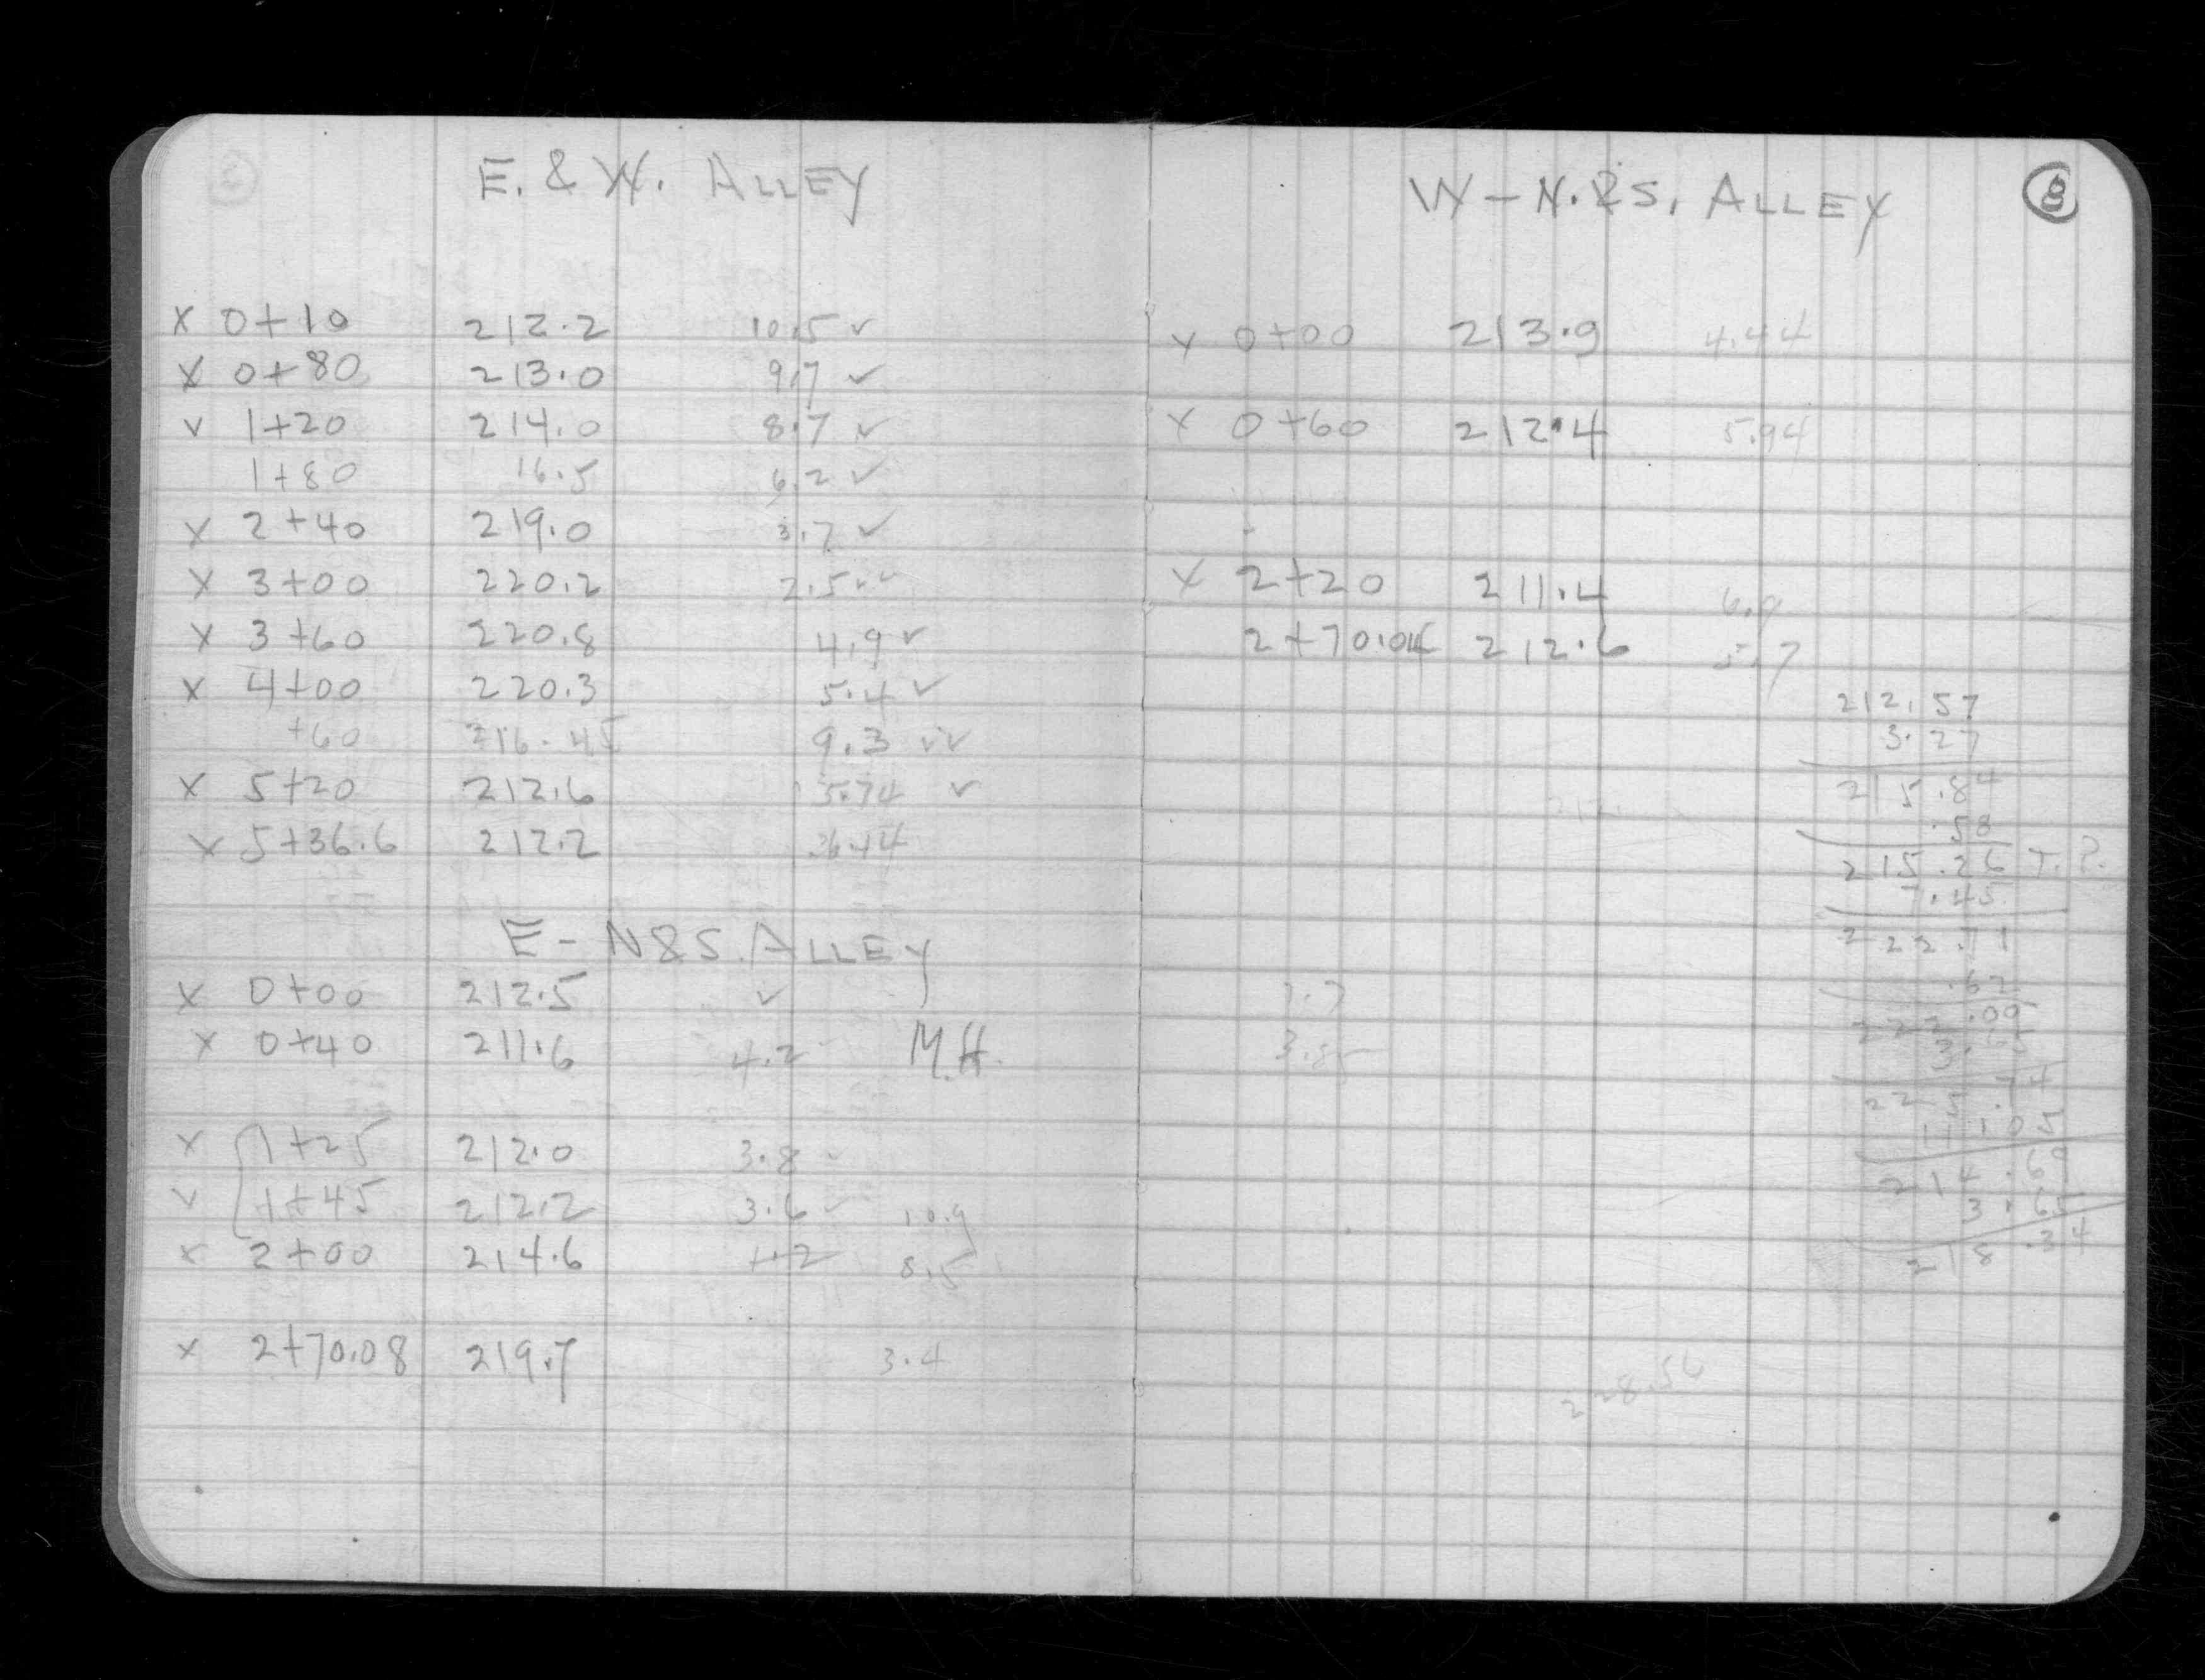 E. & W. ALLEY
X 0+10 212.2 10.5 ✓
X 0+80 213.0 9.7 ✓
✓ 1+20 214.0 8.7 ✓
1+80 16.5 6.2 ✓
X 2+40 219.0 3.7 ✓
X 3+00 220.2 2.5 ✓✓
X 3+60 220.8 4.9 ✓
X 4+00 220.3 5.4 ✓
+60 216.45 9.3 ✓✓
X 5+20 212.6 5.74 ✓
X 5+36.6 212.2
E - N&S. ALLEY
X 0+00 212.5 ✓
X 0+40 211.6 4.2 M.H.
X 1+25 212.0 3.8 ✓
✓ 1+45 212.2 3.6 ✓ 10.9
X 2+00 214.6 1.2 8.5
X 2+70.08 219.7 3.4
W - N.&S. ALLEY
8
X 0+00 213.9 4.44
X 0+60 212.4 5.94
X 2+20 211.4 6.9
2+70.04 212.6 5.7
212.57
3.27
215.84
.58
215.26 T.P.
7.45
222.71
.62
222.09
3.65
225.74
11.05
214.69
3.65
218.34
7.7
3.85
228.56